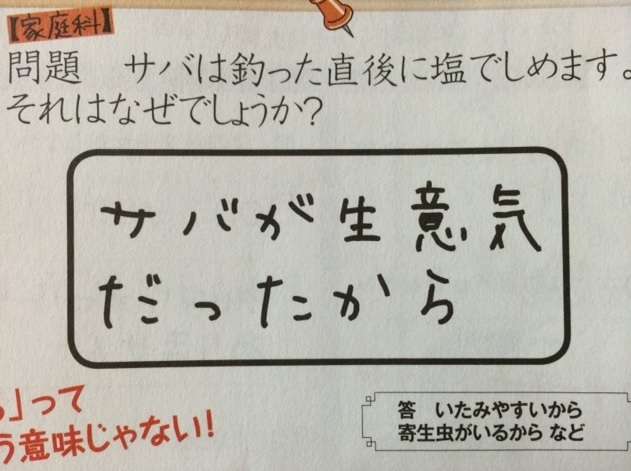 【家庭科】
問題　サバは釣った直後に塩でしめます。
それはなぜでしょうか?
サバが生意気
だったから
」って
意味じゃない!
答　いたみやすいから
寄生虫がいるから など